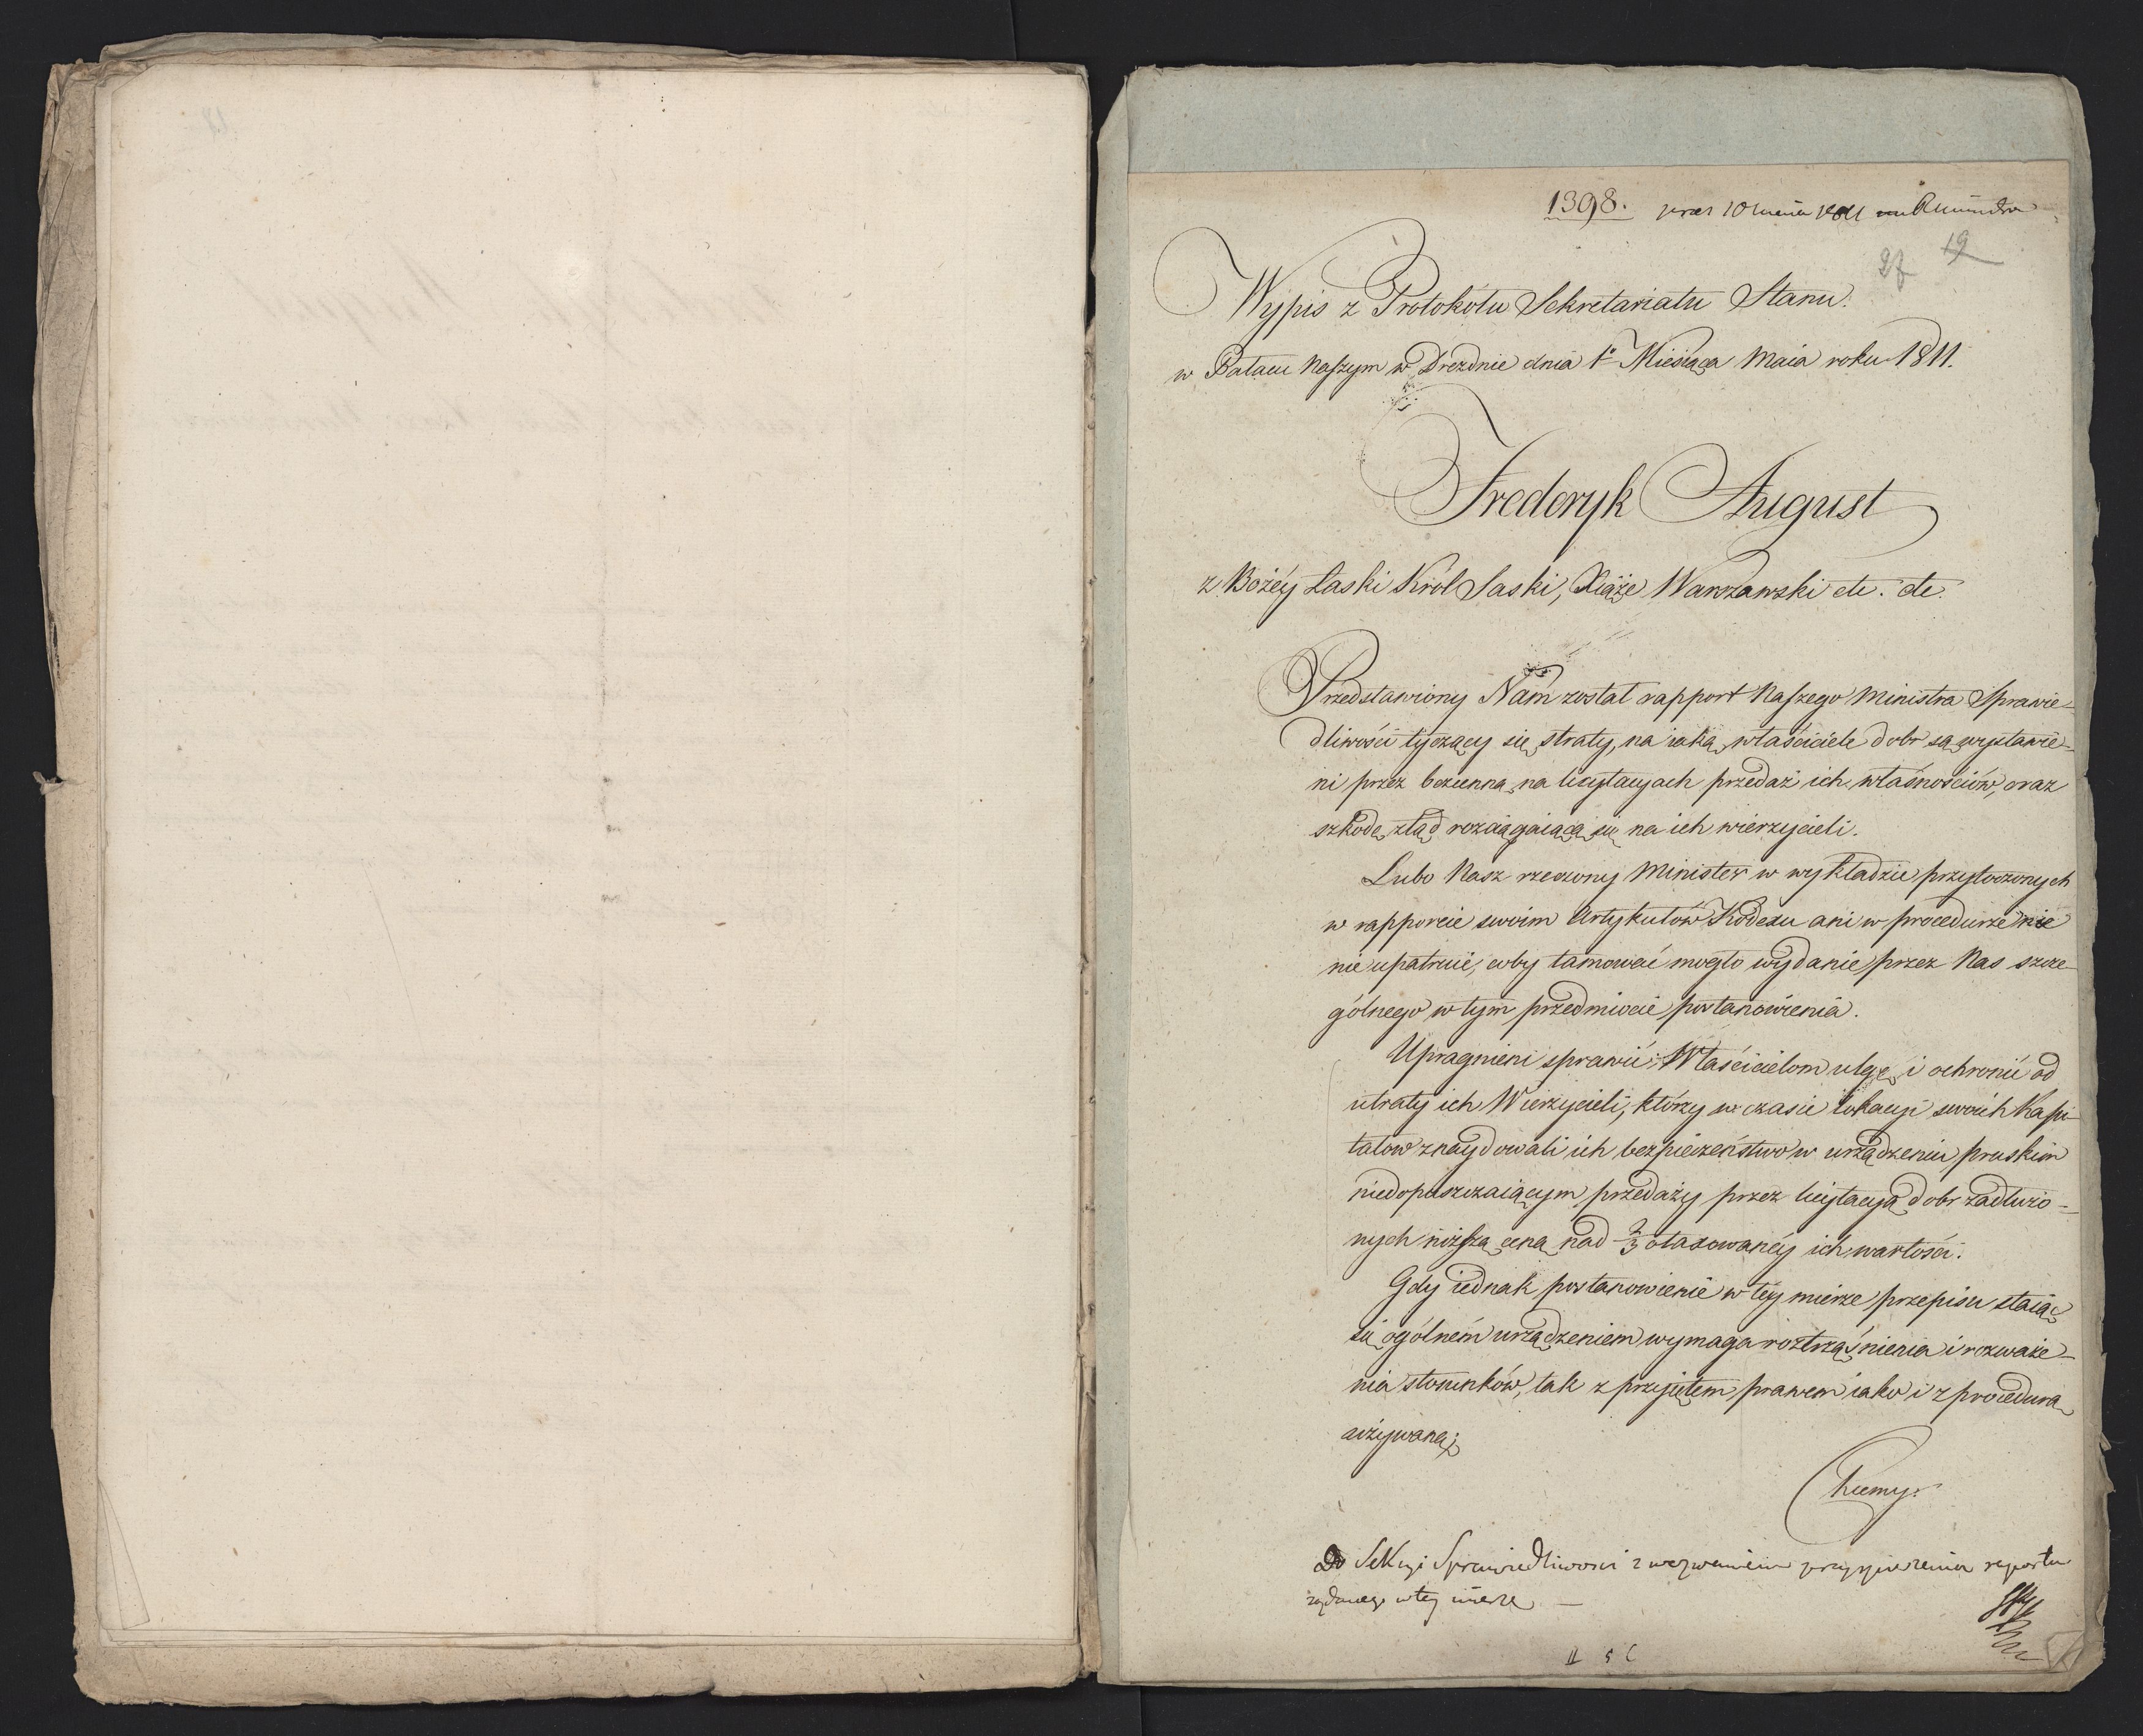 1398.
27 19
Wypis z Protokółu Sekretariatu Stanu.
w Pałacu Naszym w Dreźdnie dnia 1º Miesiąca Maia roku 1811.
Frederyk August
z Bożéy Łaski Król Saski, Xiąże Warszawski etc. etc.
Przedstawiony Nam został rapport Naszego Ministra Sprawie-
dliwości tyczący się straty, na iaką właściciele dobr są wystawie-
ni przez bezcenną na licytacyach przedaż ich własnościów, oraz
szkodę ztąd rozciągaiącą się na ich wierzycieli.
Lubo Nasz rzeczony Minister w wykładzie przytoczonych
w rapporcie swoim Artykułów Kodexu ani w procedurze nic
nie upatruie, coby tamować mogło wydanie przez Nas szcze-
gólnego w tym przedmiocie postanowienia.
Upragnieni sprawić Właścicielom ulgę i ochronić od
utraty ich Wierzycieli, którzy w czasie lokacyi swoich Kapi-
tałow znaydowali ich bezpieczeństwo w urządzeniu pruskim
niedopuszczaiącym przedaży przez licytacyą dobr zadłużo-
nych niższą ceną nad 2/3 otaxowanéy ich wartości.
Gdy iednak postanowienie w téy mierze przepisu staiąc
się ogólném urządzeniem wymaga roztrząśnienia i rozważe-
nia stosunków, tak z przyiętem prawem iako i z procedurą
używaną;
Chcemy.
Do Sekcyi Sprawiedliwości z wezwaniem przyspieszenia raportu
żądanego w tey mierze —